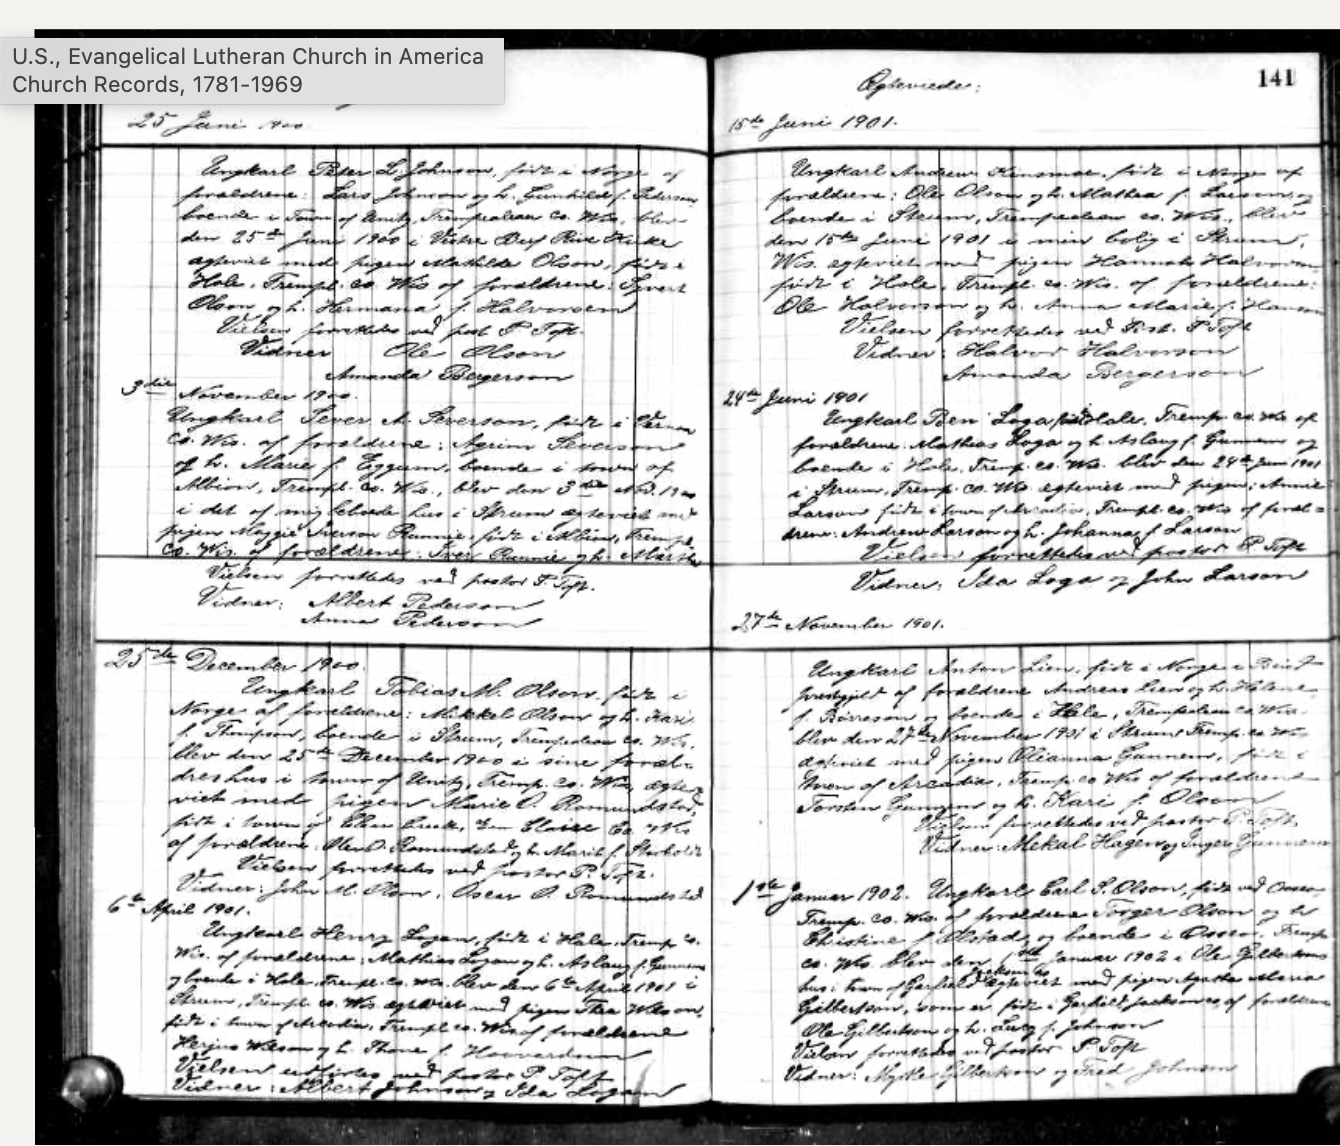 U.S., Evangelical Lutheran Church in America
Church Records, 1781-1969
25 Juni 1900.
Ungkarl Peter L. Johnson, född i Norge af
forældrene: Lars Johnson og h. Gunhild f. Pederson
boende i Town of Unity, Trempealeau Co. Wis., blev
den 25de Juni 1900 i Vestre Beef River Kirke
egteviet med pigen Mathilde Olson, født i
Hale, Trempl. Co. Wis af forældrene: Syvert
Olson og h. Hermana f. Halvorsen
Vielsen forrettedes ved past P. Toft.
Vidner Ole Olson
Amanda Bergerson
3die November 1900.
Ungkarl Sever A. Severson, født i
Co. Wis. af forældrene: Severson
og h. Marie f. Eggum, boende i town of
Albion, Trempl. Co. Wis., blev den 3die Nov. 1900
i det af mig beboede hus i Strum egteviet med
pigen Maggie Iverson Runnie, født i Albion, Trempl.
Co. Wis. af forældrene: Iver Runnie og h. Marthe
Vielsen forrettedes ved pastor P. Toft.
Vidner: Albert Pederson
Anna Pederson
25de December 1900.
Ungkarl Tobias M. Olson, født i
Norge af forældrene: Mikkel Olson og h. Kari
f. Thompson, boende i Strum, Trempealeau Co. Wis.
blev den 25de December 1900 i sine foræl-
dres hus i town of Unity, Tremp. Co. Wis, egte-
viet med pigen Marie O. Romundstad,
født i town of Clear Creek, Eau Claire Co. Wis
af forældrene: Ole O. Romundstad og h. Marit f.
Vielsen forrettedes ved pastor P. Toft.
Vidner: John M. Olson, Oscar O. Romundstad
6te April 1901.
Ungkarl Henry Logan, født i Hale, Tremp Co.
Wis. af forældrene: Mathias Logan og h. Aslaug f. Gunnem
og boende i Hale, Trempl. Co. Wis. blev den 6te April 1901 i
Strum, Trempl. Co. Wis egteviet med pigen Thea Wilson,
født i town of Arcadia, Trempl. Co. Wis af forældrene
Wilson og h. Thone f.
Vielsen udførtes ved pastor P. Toft
Vidner: Albert Johnson og Ida Logan
Egteviede:
141
15de Juni 1901.
Ungkarl Andrew, født i Norge af
forældrene: Ole Olson og h. Mathea f. Larson, og
boende i Strum, Trempealeau Co. Wis., blev
den 15de Juni 1901 i min bolig i Strum,
Wis. egteviet med pigen Hannah Halvorson
født i Hale, Trempl. Co. Wis. af forældrene:
Ole Halvorson og h. Anna Marie f. Hanson
Vielsen forrettedes ved Past. P Toft
Vidner: Halvor Halvorson
Amanda Bergerson
24de Juni 1901
Ungkarl Ben Loga, født i Hale, Tremp. Co. Wis af
forældrene: Mathias Loga og h Aslaug f. Gunnem og
boende i Hale, Tremp. Co. Wis. blev den 24de Juni 1901
i Strum, Tremp. Co. Wis. egteviet med pigen: Annie
Larson født i town of Arcadia, Trempl. Co. Wis af foræl-
drene: Andrew Larson og h. Johanna f. Larson
Vielsen forrettedes ved pastor P. Toft
Vidner: Ida Loga og John Larson
27de November 1901.
Ungkarl Anton Lien, født i Norge i
præstgjeld af forældrene Andreas Lien og h. Helene
f. og boende i Hale, Trempealeau Co. Wis.
blev den 27de November 1901 i Strum Tremp. Co Wis
egteviet med pigen Olianna Gunnem, født i
town of Arcadia, Tremp. Co Wis af forældrene
Torsten Gunnem og h. Kari f. Olson
Vielsen forrettedes ved pastor P. Toft.
Vidner: Mekal Hagen og Inger Gunnem
1ste Januar 1902. Ungkarl Carl T. Olson, født ved Osseo,
Tremp. Co. Wis. af forældrene Torger Olson og h
Christine f Olstad, og boende i Osseo, Tremp
Co. Wis. blev den 1ste Januar 1902 i Ole Gilbertsons
hus i town of Garfield Jackson Co egteviet med pigen Agatha Maria
Gilbertson, som er født i Garfield, Jackson Co, af forældrene
Ole Gilbertson og h. f. Johnson
Vielsen forrettedes ved pastor P Toft
Vidner: Gilbertson og Fred Johnson